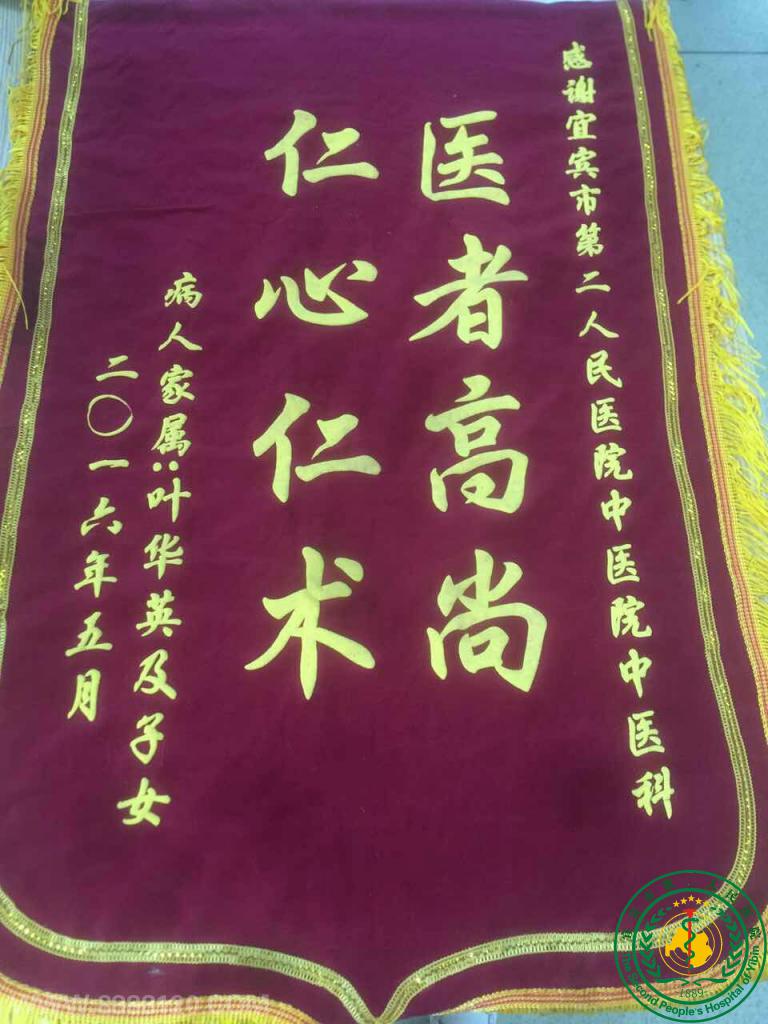 感谢宜宾市第二人民医院中医院中医科
医者高尚
仁心仁术
病人家属:叶华英及子女
二〇一六年五月
The Second People's Hospital of Yibin
1889